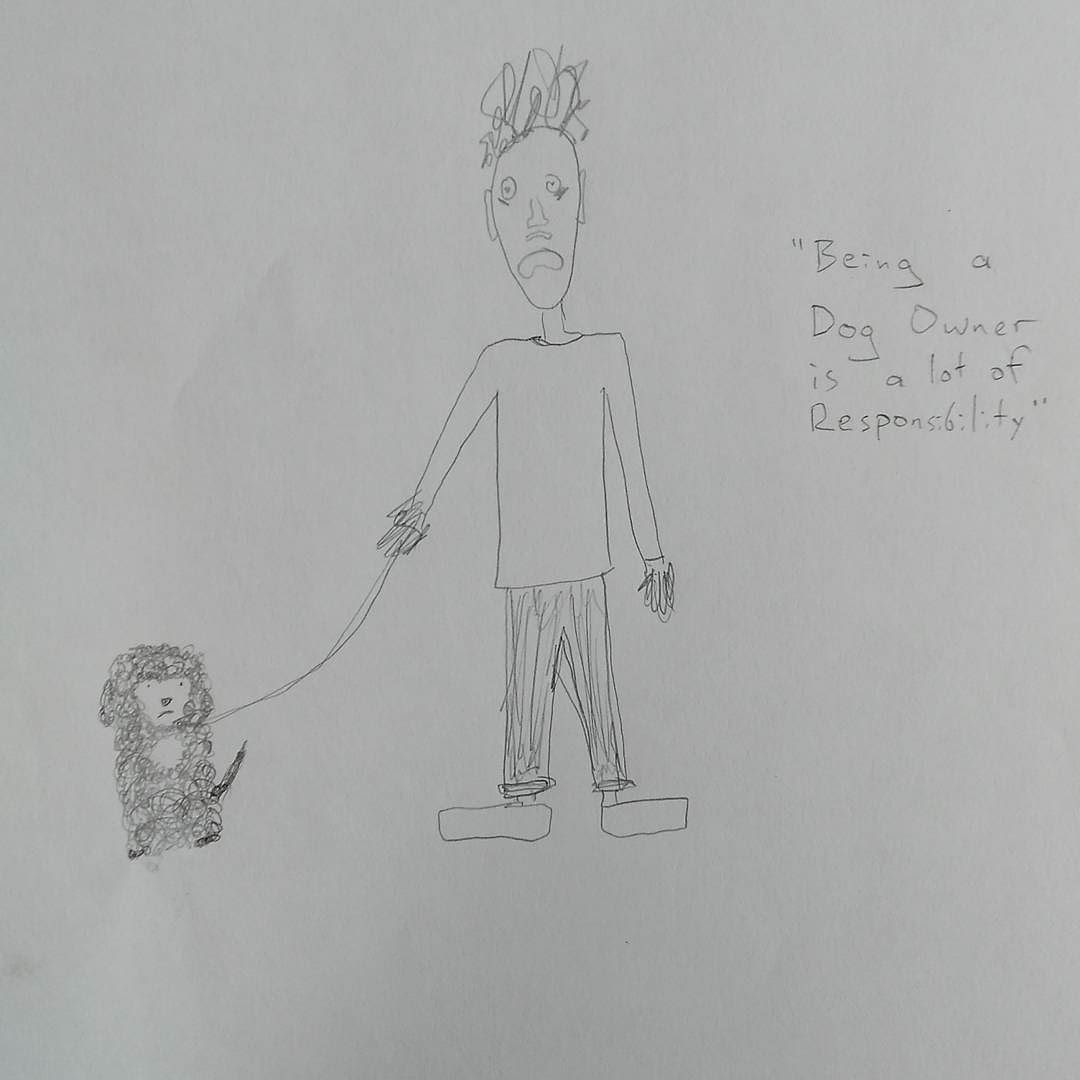 "Being a
Dog Owner
is a lot of
Responsibility"